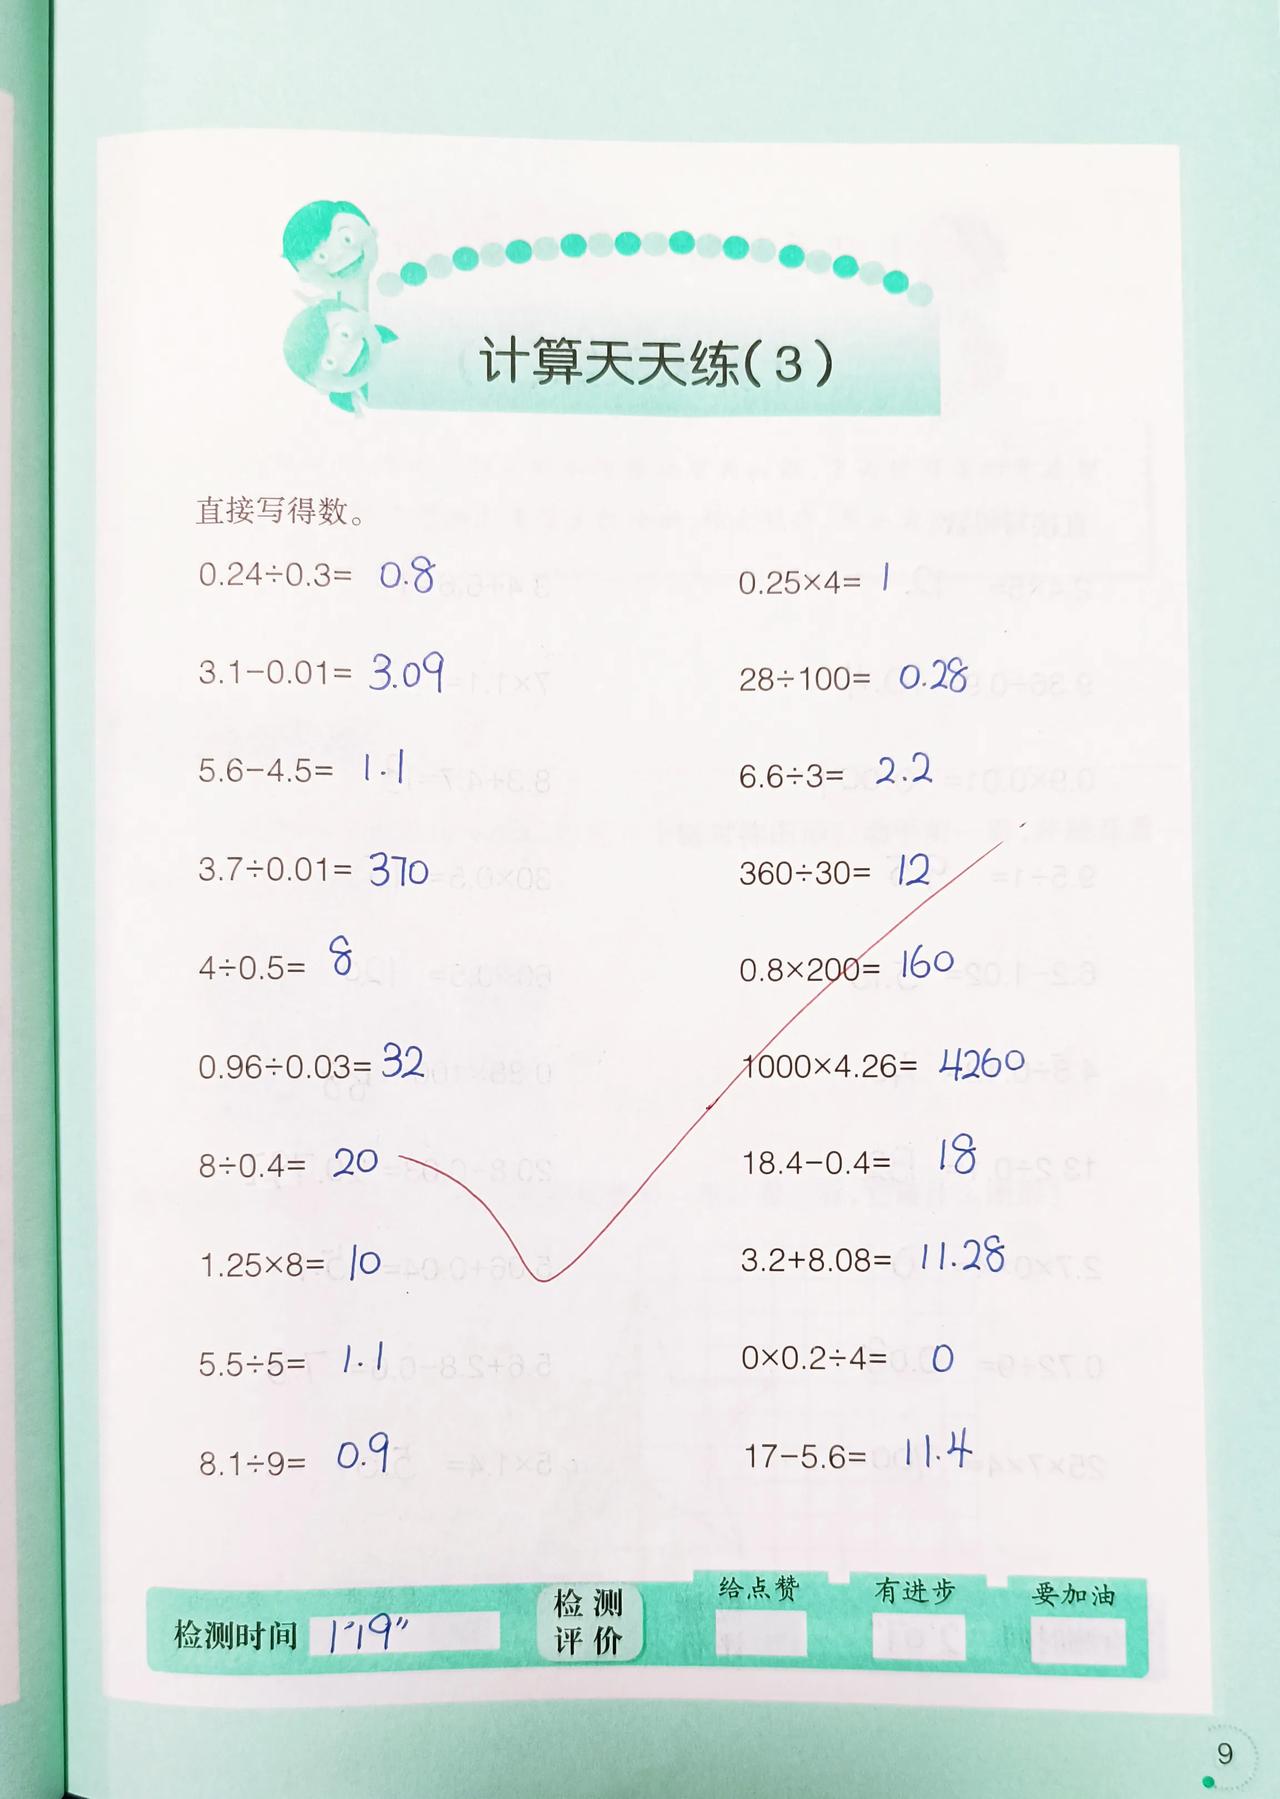 计算天天练(3)
直接写得数。
0.24÷0.3= 0.8
0.25×4= 1
3.1−0.01= 3.09
28÷100= 0.28
5.6−4.5= 1.1
6.6÷3= 2.2
3.7÷0.01= 370
360÷30= 12
4÷0.5= 8
0.8×200= 160
0.96÷0.03= 32
1000×4.26= 4260
8÷0.4= 20
18.4−0.4= 18
1.25×8= 10
3.2+8.08= 11.28
5.5÷5= 1.1
0×0.2÷4= 0
8.1÷9= 0.9
17−5.6= 11.4
检测时间 1'19"
检测
评价
给点赞 有进步 要加油
9